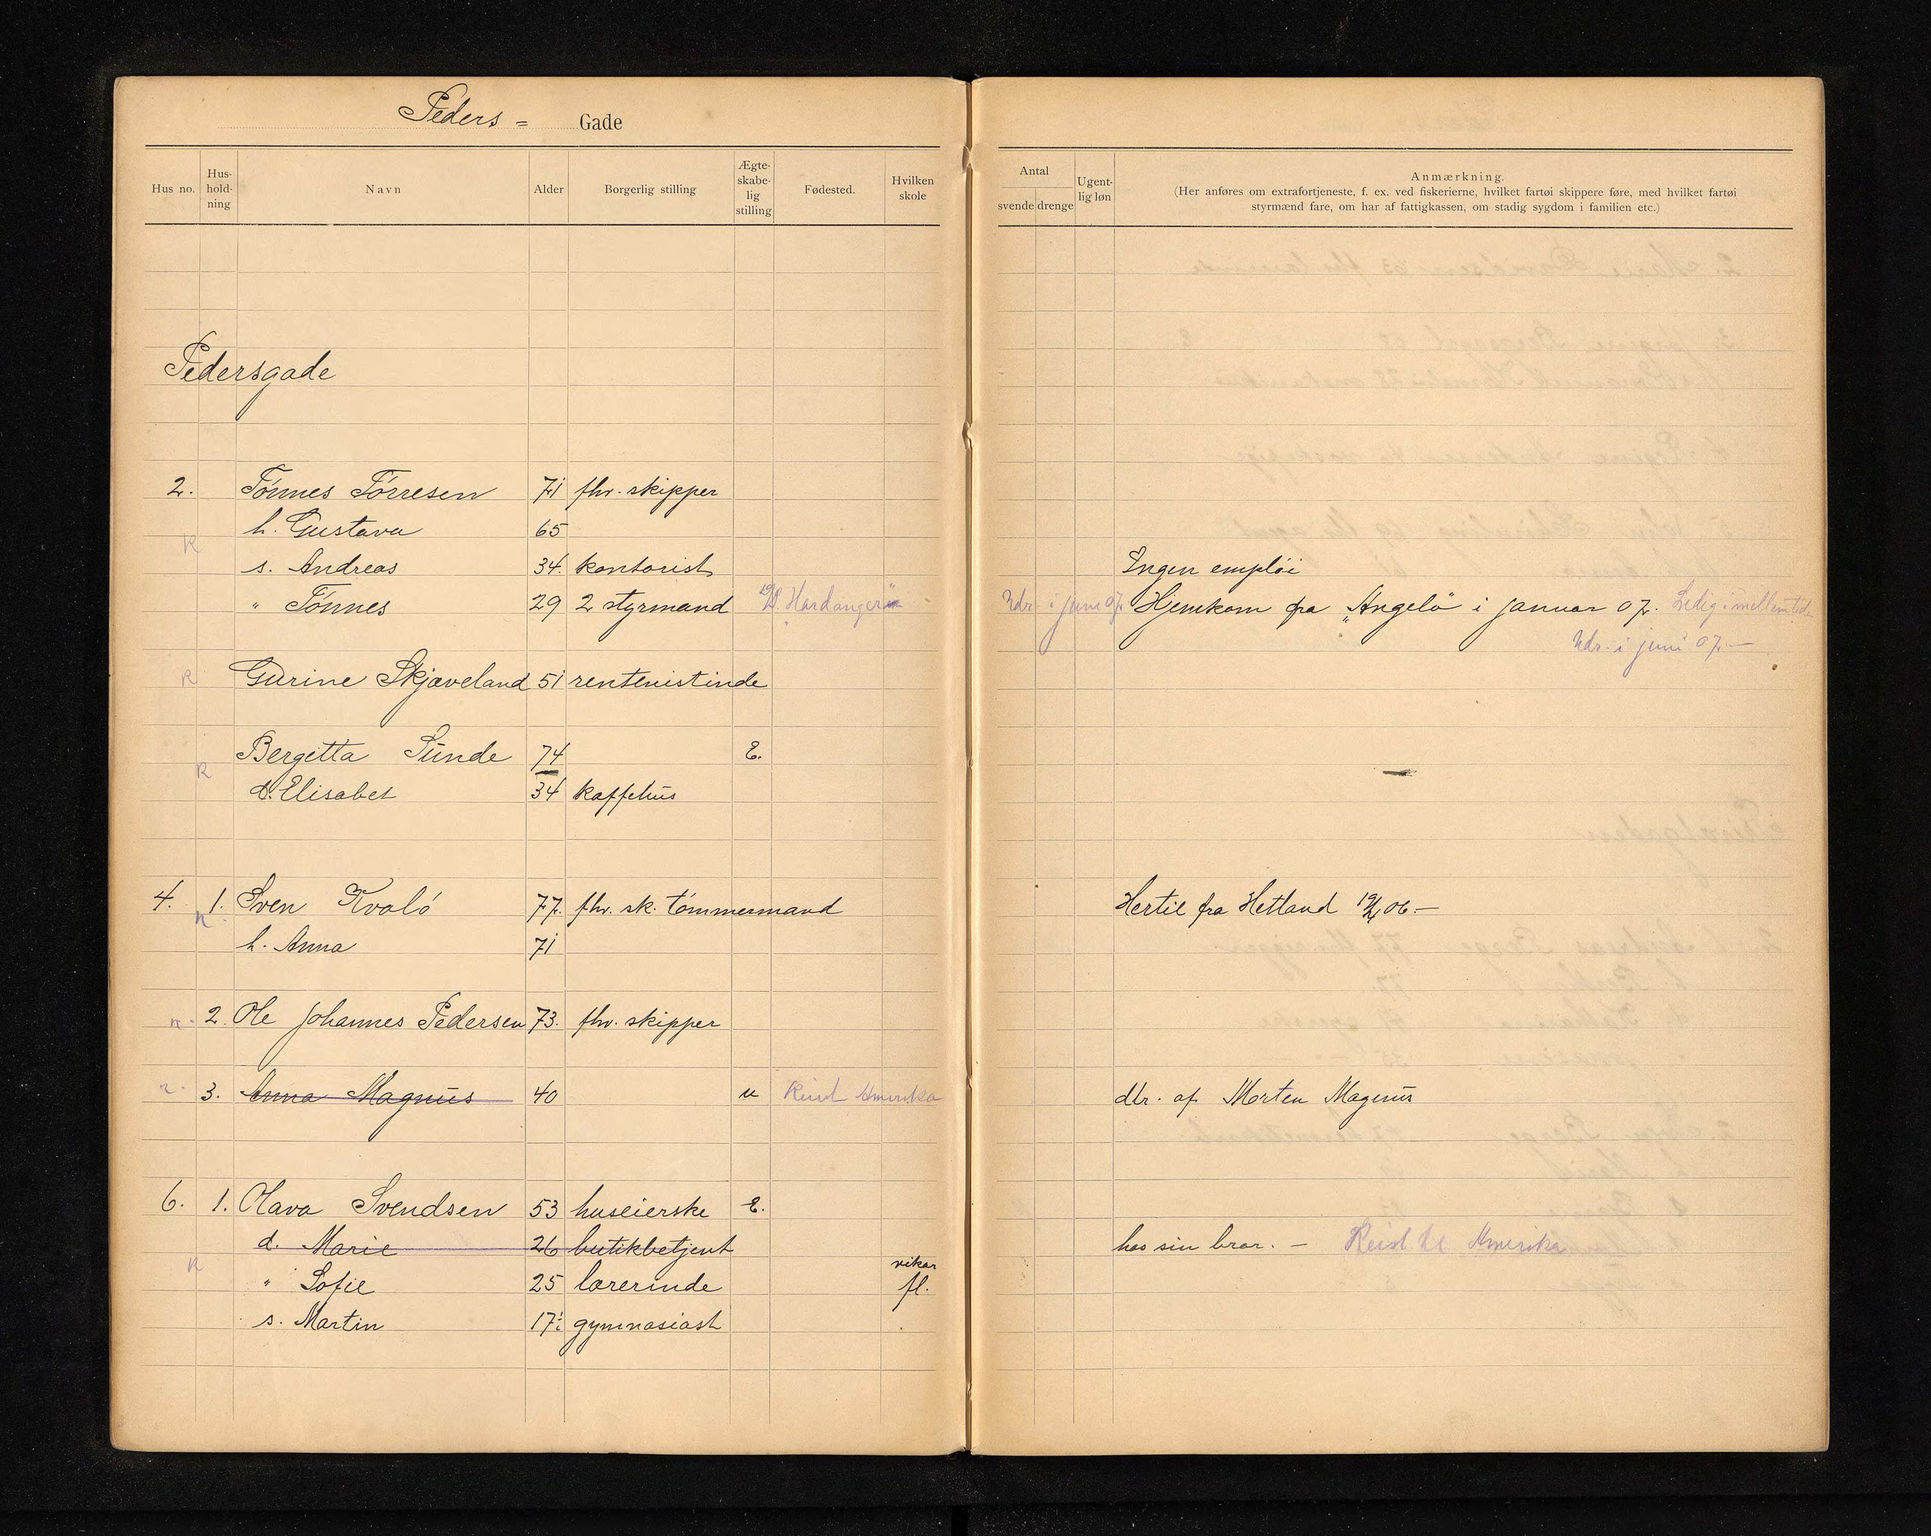 Peders = Gade
Hus no. Hus-hold-ning Navn Alder Borgerlig stilling Ægte-skabe-lig stilling Fødested. Hvilken skole
Antal svende drenge Ugent-lig løn Anmærkning.
(Her anføres om extrafortjeneste, f. ex. ved fiskerierne, hvilket fartøi skippere føre, med hvilket fartøi
styrmænd fare, om har af fattigkassen, om stadig sygdom i familien etc.)
Pedersgade
2. Tønnes Tørresen 71 fhv. skipper
h. Gustava 65
R
s. Andreas 34 kontorist Engen emploi
" Tønnes 29 2 styrmand "Hardanger" Udr. i juni 07. Hjemkom fra "Angelo" i januar 07. Ledig i mellemtid
Udr. i juni 07.—
R Gurine Skjæveland 51 rentenistinde
Bergitta Sunde 74 E.
R
d. Elisabet 34 kaffehus
4. 1. Sven Kvalø 77. fhv. sk. tømmermand Hertil fra Hetland 06.—
h. Anna 71
2. Ole Johannes Pedersen 73. fhv. skipper
3. Anna Magnus 40 u Reist Amerika dtr. af Morten Magnus
6. 1. Olava Svendsen 53 huseierske E.
d. Marie 26 butikbetjent hos sin bror. — Reist til Amerika
R
" Sofie 25 lærerinde vikar fl.
s. Martin 17 gymnasiast